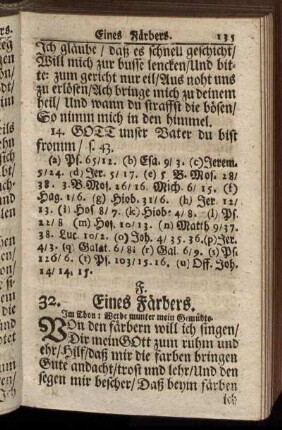 Eines Färbers. 135
Ich gläube / daß es schnell geschicht /
Will mich zur busse lencken / Und bit-
te: zum gericht nur eil / Aus noht uns
zu erlösen / Ach bringe mich zu deinem
heil / Und wann du straffst die bösen /
So nimm mich in den himmel.
14. GOTT unser Vater du bist
fromm / s. 43.
(a) Ps. 65/12. (b) Esa. 9/3. (c) Jerem.
5/24. (d) Jer. 5/17. (e) 5 B. Mos. 28/
38. 3. B. Mos. 26/16. Mich. 6/15. (f)
Hag. 1/6. (g) Hiob. 31/6. (h) Jer. 12/
13. (i) Hos 8/7. (k) Hiob: 4/8. (l) Ps.
22/8 (m) Hos. 10. (n) Matth 9/37.
38. Luc. 10/2. (o) Joh. 4/35. 36. (p) Jer.
4/3. (q) Galat. 6/8. (r) Gal. 6/9. (s) Ps.
126/6. (t) Ps. 103/15. 16. (u) Off. Joh.
14/14. 15.
F.
32. Eines Färbers.
Im Thon: Werde munter mein Gemüte.
Von den färbern will ich singen /
Dir mein GOtt zum ruhm und
ehr / Hilf / daß mir die farben bringen
Gute andacht / trost und lehr / Und den
segen mir bescher / Daß beym färben
ich